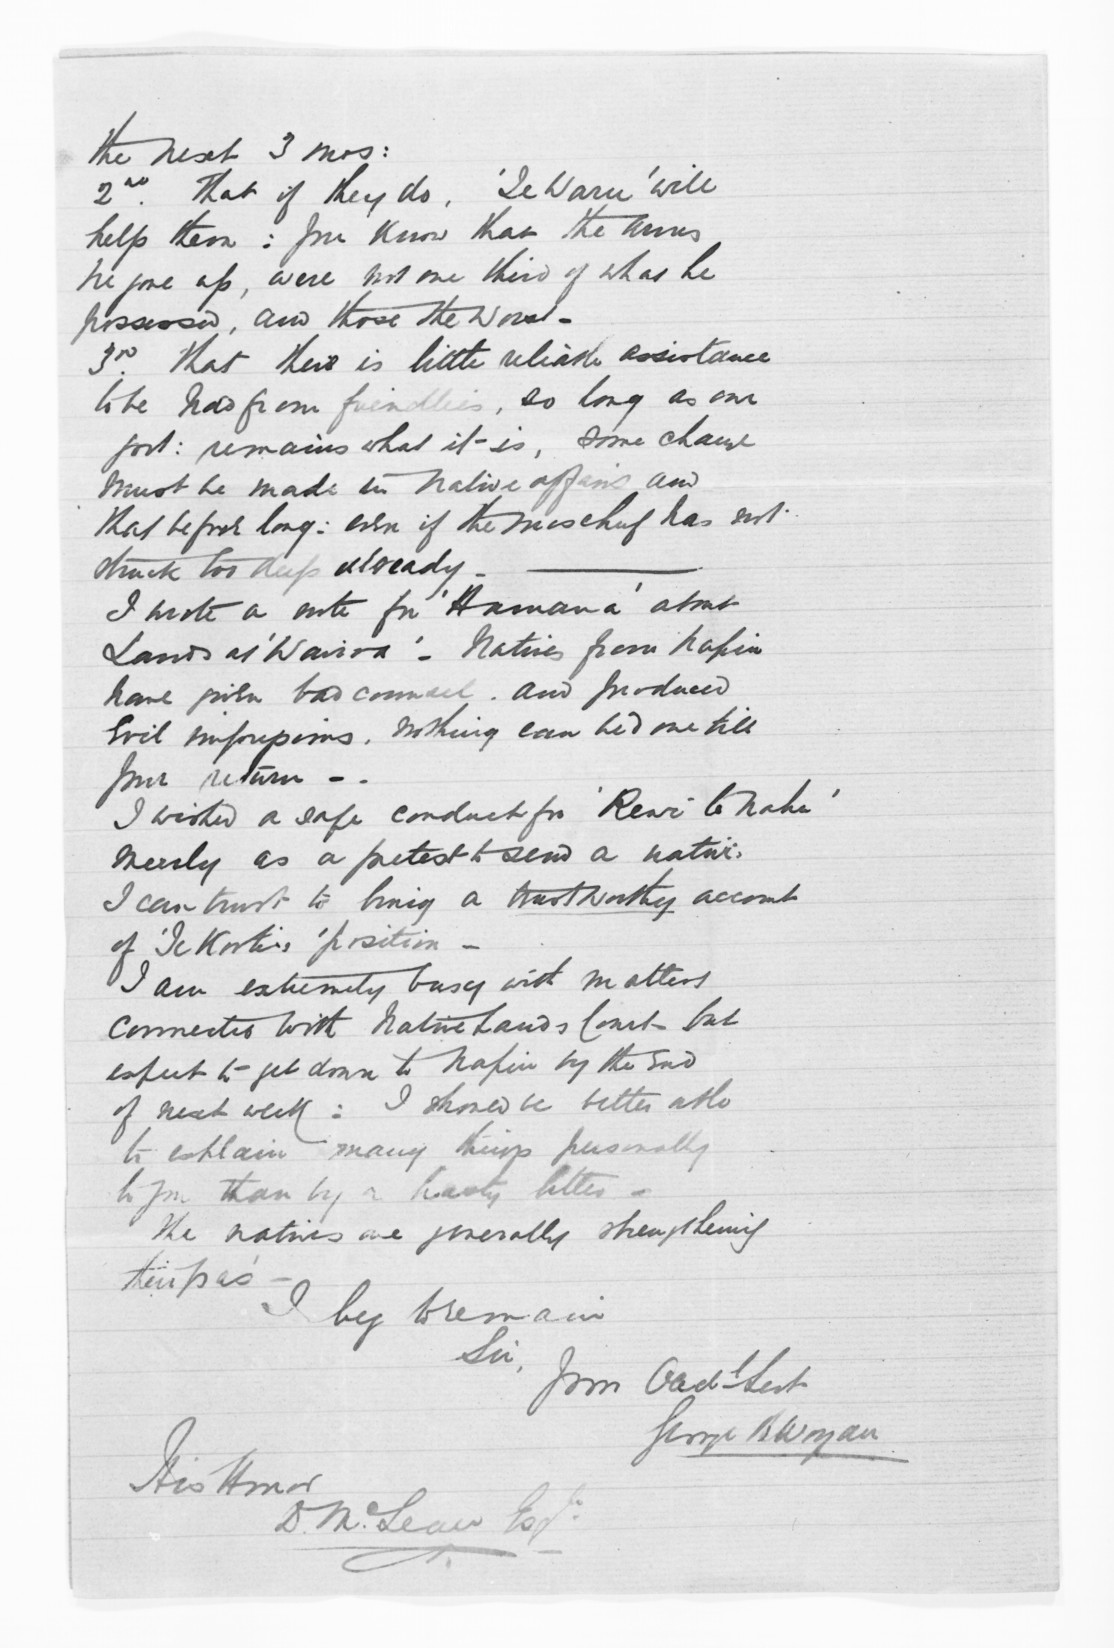 the next 3 mos:
2nd. That if they do, 'Te Waru' will
help them: you know that the arms
he gave up, were not one third of what he
possessed, and those the worst -
3rd. That there is little reliable assistance
to be had from friendlies, so long as our
govt: remains what it is, some change
must be made in Native affairs and
that before long: even if the mischief has not
struck too deep already. -
I wrote a note for 'Hamana' about
Lands at 'Wairoa' - Natives from Napier
have given bad counsel. and produced
Evil impressions. Nothing can be done till
your return - .
I wished a safe conduct for 'Rewi te
merely as a pretext to send a native
I can trust to bring a trustworthy account
of 'Te Kooti's' position -
I am extremely busy with matters
connected with Native Lands Court but
expect to get down to Napier by the End
of next week: I should be better able
to explain many things personally
to you than by a hasty letter -
The natives are generally strengthening
their pas -
I beg to remain
Sir,
Your Obedt Sert
George B Worgan
His Honor
D. McLean Esqr.